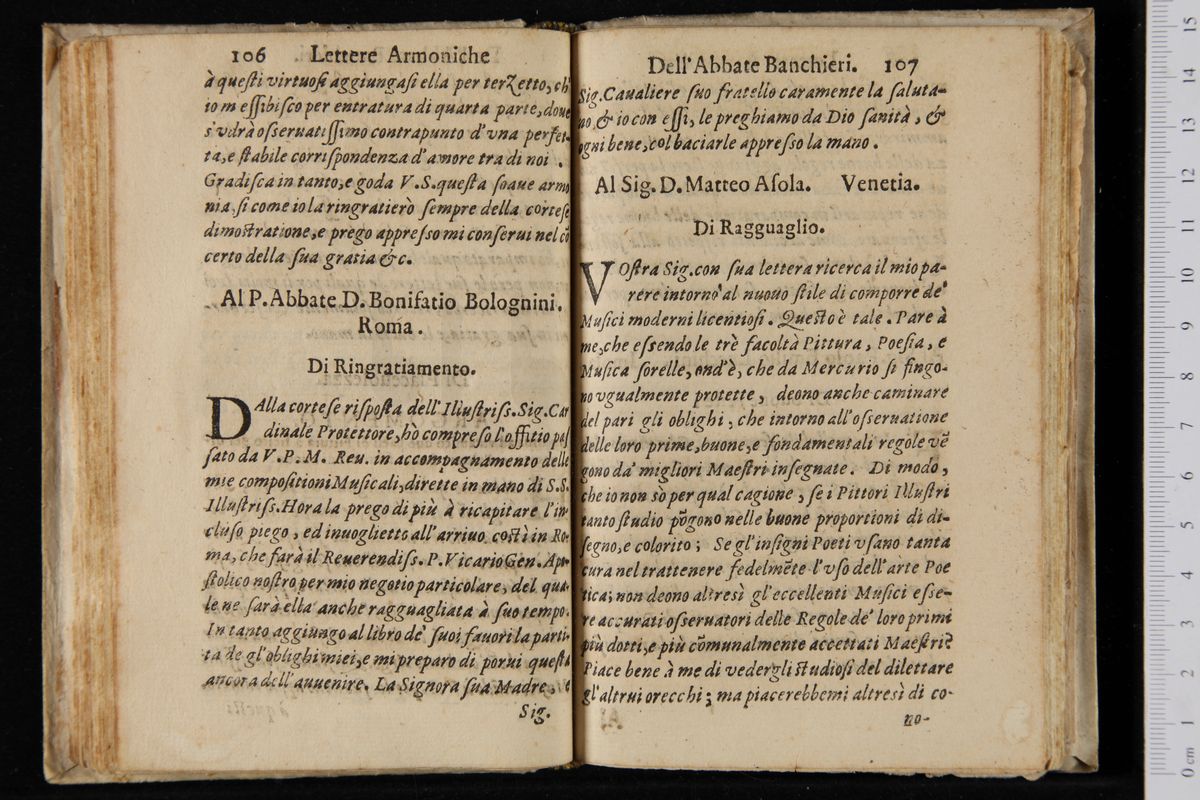 106 Lettere Armoniche
à queſti virtuoſi aggiungaſi ella per terZetto, ch'
io m eſſibiſco per entratura di quarta parte, doue
s'vdrà oſſeruatiſſimo contrapunto d'vna perfet-
ta, e ſtabile corriſpondenza d'amore tra di noi .
Gradiſca in tanto, e goda V.S. queſta ſoaue armo
nia, ſi come io la ringratierò ſempre della corteſe
dimoſtratione, e prego appreſſo mi conſerui nel cō
certo della ſua gratia &c.
Al P. Abbate D. Bonifatio Bolognini.
Roma.
Di Ringratiamento.
DAlla corteſe riſpoſta dell'Illuſtriſs. Sig. Car
dinale Protettore, hò compreſo l'offitio paſ
ſato da V.P.M. Reu. in accompagnamento delle
mie compoſitioni Muſicali, dirette in mano di S.S.
Illuſtriſs. Hora la prego di più à ricapitare l'in
cluſo piego, ed inuoglietto all'arriuo coſtì in Ro-
ma, che farà il Reuerendiſs. P. Vicario Gen. Apo-
ſtolico noſtro per mio negotio particolare, del qua-
le ne ſarà ella anche ragguagliata à ſuo tempo.
In tanto aggiungo al libro de' ſuoi fauori la parti-
ta de gl'oblighi miei, e mi preparo di porui queſta
ancora dell'auuenire. La Signora ſua Madre, e
Sig.
Dell'Abbate Banchieri. 107
Sig. Caualiere ſuo fratello caramente la ſaluta-
no, & io con eſſi, le preghiamo da Dio ſanità, &
ogni bene, col baciarle appreſſo la mano.
Al Sig. D. Matteo Aſola. Venetia.
Di Ragguaglio.
VOſtra Sig. con ſua lettera ricerca il mio pa-
rere intorno al nuouo ſtile di comporre de'
Muſici moderni licentioſi. Queſto è tale. Pare à
me, che eſſendo le trè facoltà Pittura, Poeſia, e
Muſica ſorelle, ond'è, che da Mercurio ſi fingo-
no vgualmente protette, deono anche caminare
del pari gli oblighi, che intorno all'oſſeruatione
delle loro prime, buone, e fondamentali regole vē
gono da' migliori Maeſtri inſegnate. Di modo,
che io non sò per qual cagione, ſe i Pittori Illuſtri
tanto ſtudio pōgono nelle buone proportioni di di-
ſegno, e colorito; Se gl'inſigni Poeti vſano tanta
cura nel trattenere fedelmēte l'vſo dell'arte Poe
tica; non deono altresì gl'eccellenti Muſici eſſe-
re accurati oſſeruatori delle Regole de' loro primi
più dotti, e più cōmunalmente accettati Maeſtri?
Piace bene à me di vedergli ſtudioſi del dilettare
gl'altrui orecchi; ma piacerebbemi altresì di co-
no-